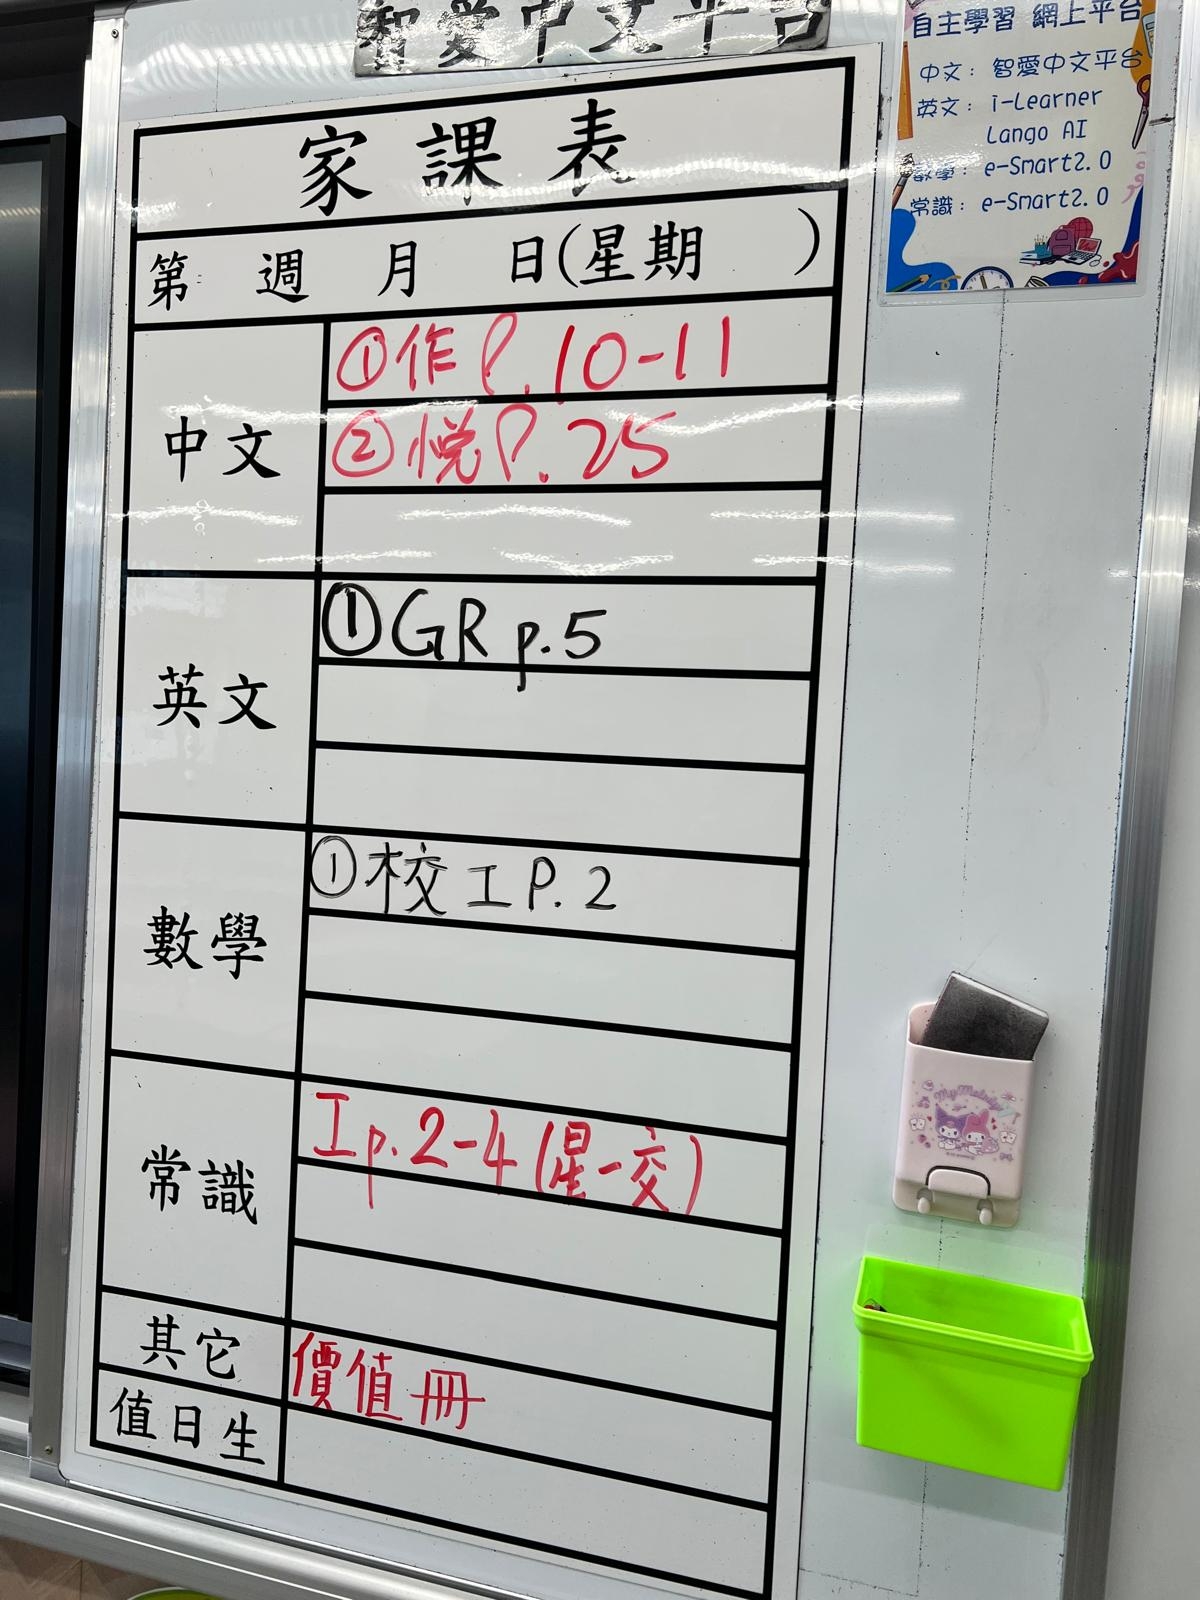 智愛中文平台
自主學習 網上平台
中文：智愛中文平台
英文：i-Learner
Lango AI
數學：e-Smart2.0
常識：e-Smart2.0
家課表
第 週 月 日(星期 )
中文
①作P.10-11
②悦P.25
英文
①GR p.5
數學
①校工P.2
常識
工p.2-4(星一交)
其它
價值冊
值日生
My Melody